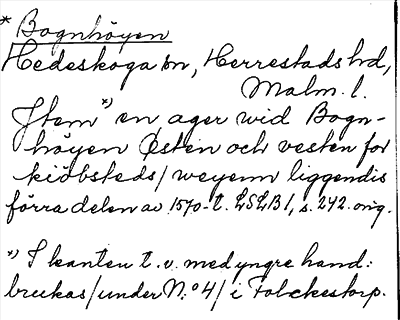 * Bognhöyen
Hedeskoga sn, Herrestads hd,
Malm. l.
Jtem *) en ager wid Bogn-
höyen Østen och vesten for
kiöbsteds/weyenn liggendis
förra delen av 1570-t. LSLB1, s. 242. orig.
*) I kanten t. v. med yngre hand:
bruckas/under N:o 4/ i Folckestorp.